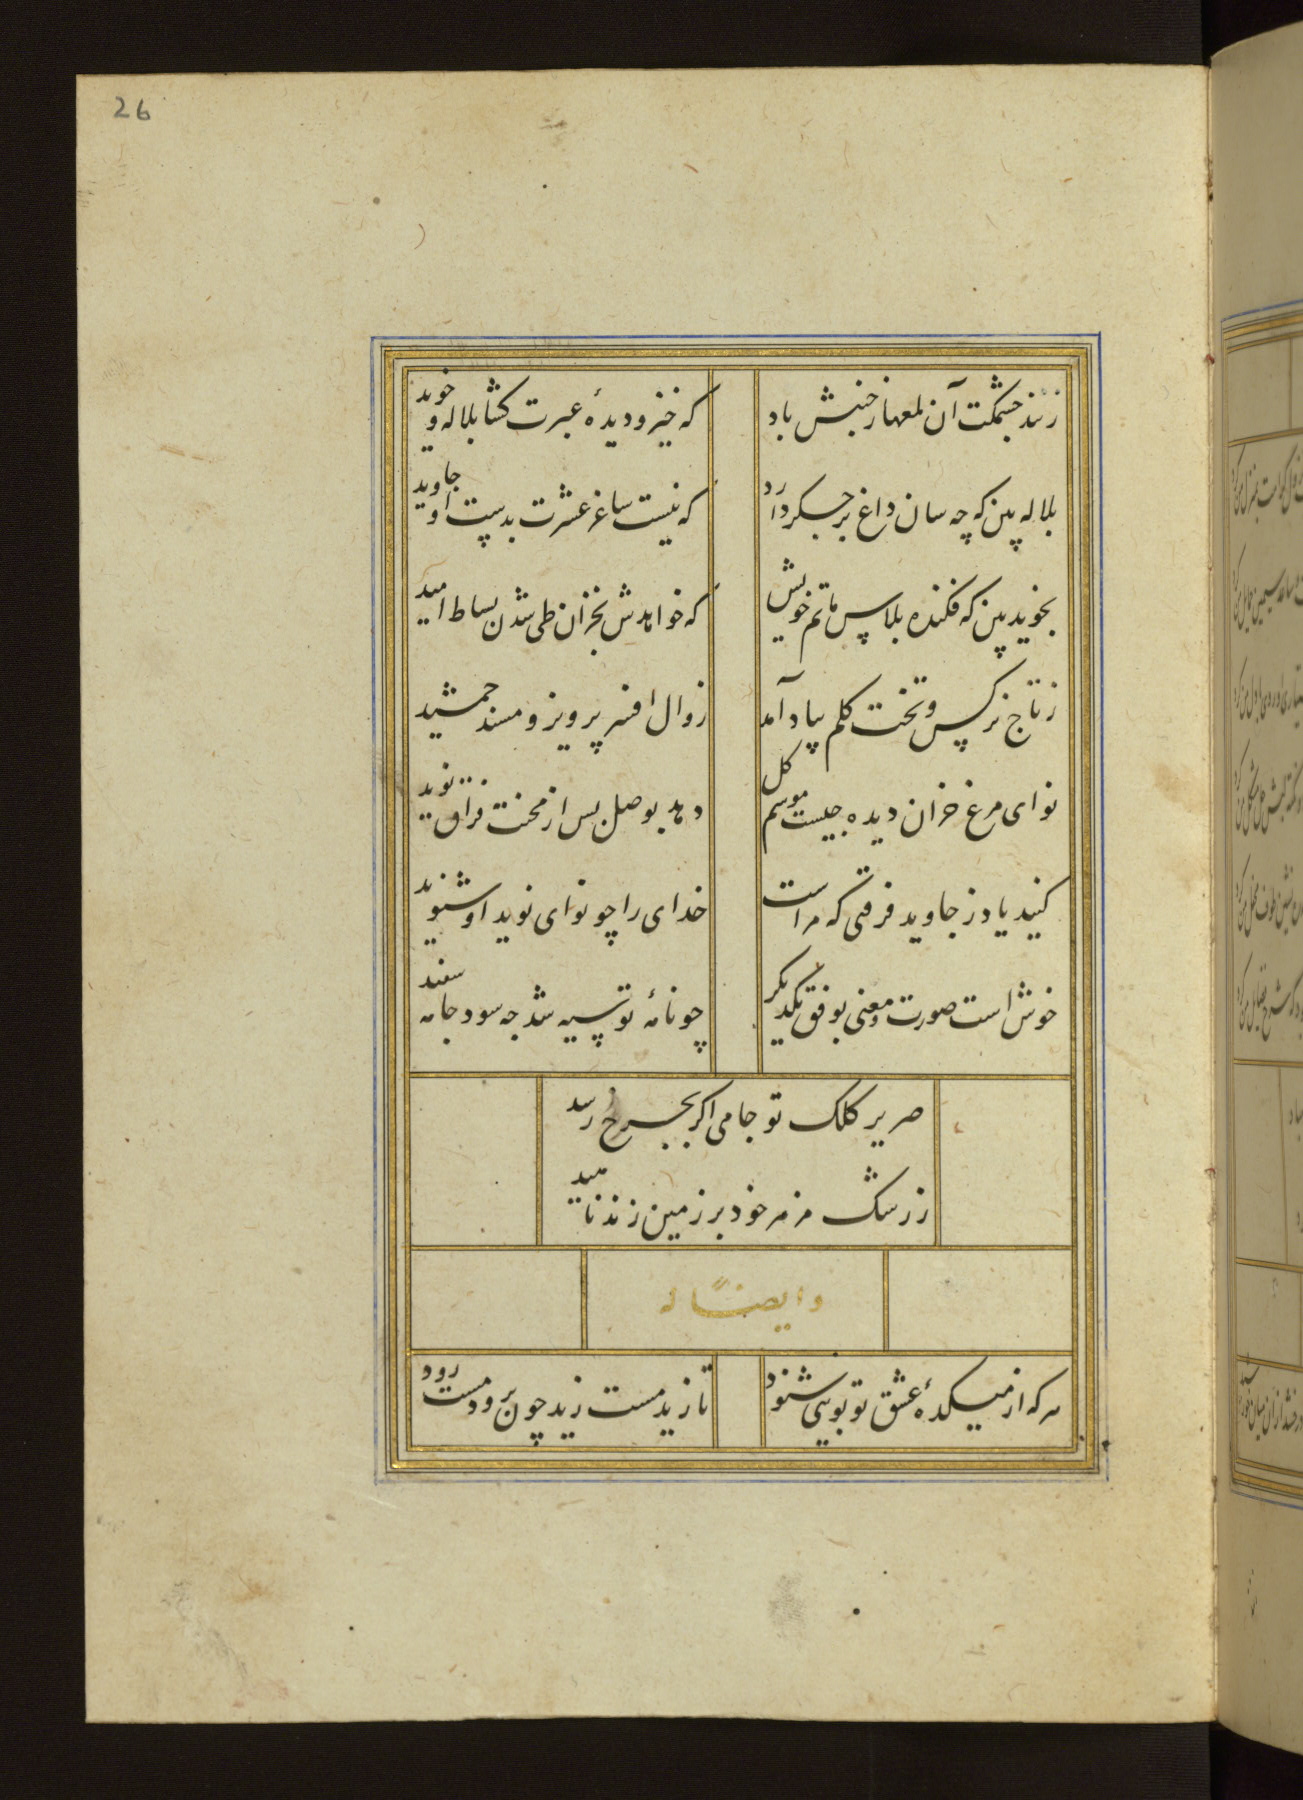 26
زنند چشمکت آن لمعها ز جنبش باد
که خیز و دیدهٔ عبرت کشا بلاله و خوید
بلاله بین که چه سان داغ بر جکر دارد
که نیست ساغر عشرت بدست او جاوید
بخوید بین که فکنده پلاس ماتم خویش
که خواهدش بخزان طی شدن بساط امید
ز تاج نرکس و تخت کلم بیاد آمد
زوال افسر پرویز و مسند جمشید
نوای مرغ خزان دیده چیست موسم کل
دهد بوصل پس از محنت فراق نوید
کنید یاد ز جاوید فرقتی که مراست
خدای را چو نوای نوید او شنوید
خوش است صورت و معنی بوفق یکدیکر
چو نامهٔ تو سیه شد چه سود جامه سفید
صریر کلک تو جامی اکر بچرخ رسد
ز رشک مزمر خود بر زمین زند ناهید
و ایضًا له
هر که از میکدهٔ عشق تو بویی شنود
تا زید مست زید چون برود مست رود